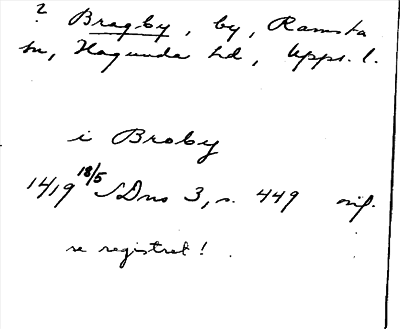 ? Bragby, by, Ramsta
sn, Hagunda hd, Upps. l.
i Broby
1419 18/5 SDns 3, s. 449 orig.
se registret!